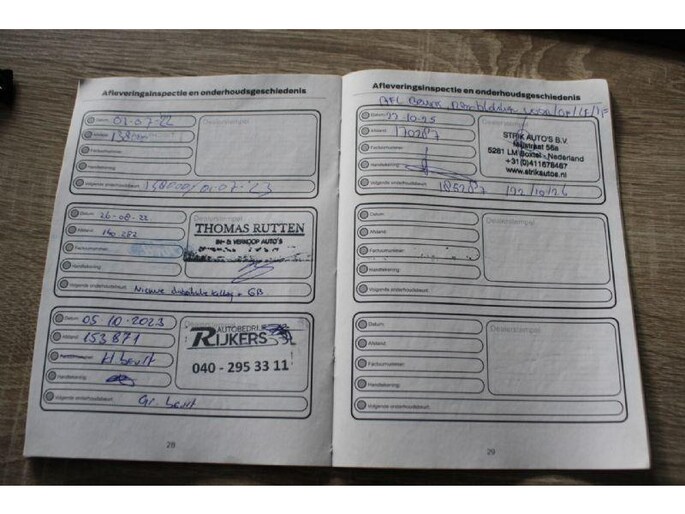 Afleveringsinspectie en onderhoudsgeschiedenis
Datum: 07-07-22
Dealerstempel:
Afstand:
Factuurnummer:
Handtekening:
Volgende onderhoudsbeurt:
Datum: 26-08-22.
Dealerstempel:
THOMAS RUTTEN
IN- & VERKOOP AUTO'S
Afstand: 140.282
Factuurnummer:
Handtekening:
Volgende onderhoudsbeurt: Nieuwe + GB
Datum: 05-10-2023
AUTOBEDRIJF
RIJKERS
040 - 295 33 11
Afstand: 153871
Factuurnummer: kl beurt
Handtekening:
Volgende onderhoudsbeurt: Gr. beurt
28
Afleveringsinspectie en onderhoudsgeschiedenis
Datum: 22-10-25
STRIK AUTO'S B.V.
5281 LM Boxtel - Nederland
+31(0)411678467
www.strikautos.nl
Afstand: 170287
Factuurnummer:
Handtekening:
Volgende onderhoudsbeurt: 185287 / 22/10/26
Datum:
Dealerstempel:
Afstand:
Factuurnummer:
Handtekening:
Volgende onderhoudsbeurt:
Datum:
Dealerstempel:
Afstand:
Factuurnummer:
Handtekening:
Volgende onderhoudsbeurt:
29